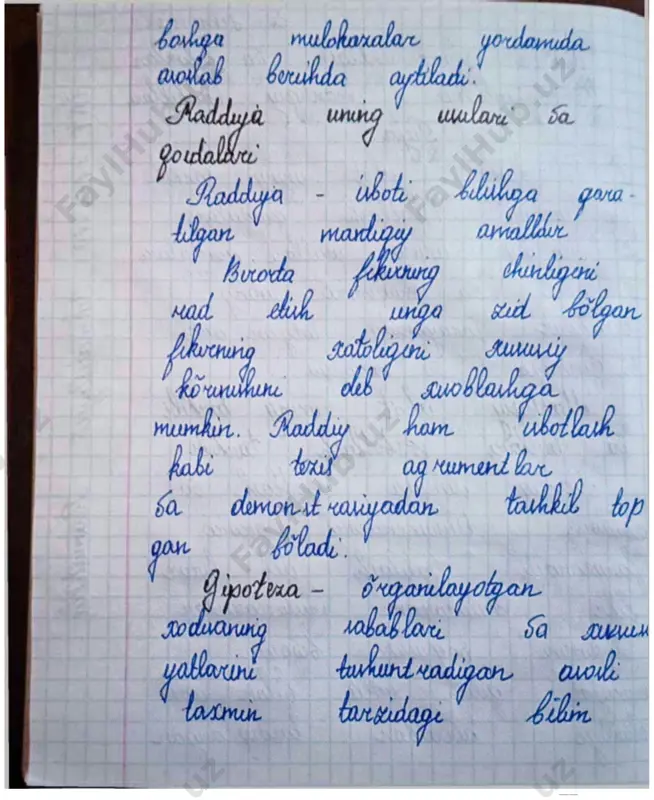 boshga mulohazalar yordamida
asoslab berishda aytiladi.
Raddiya uning usulari va
qoidalari
Raddiya - isboti bilishga qara-
tilgan mantiqiy amaldir
Birorta fikrning chinligini
rad etish unga zid bõlgan
fikrning xatoligini xususiy
kõrinishini deb xisoblashga
mumkin. Raddiy ham isbotlash
kabi tezis agrumentlar
va demonstrasiyadan tashkil top
gan bõladi.
Gipoteza - õrganilayotgan
xodisaning sabablari va xususi
yatlarini tushuntradigan asosli
taxmin tarzidagi bilim
FaylHub.uz
FaylHub.uz
FaylHub.uz
uz
uz